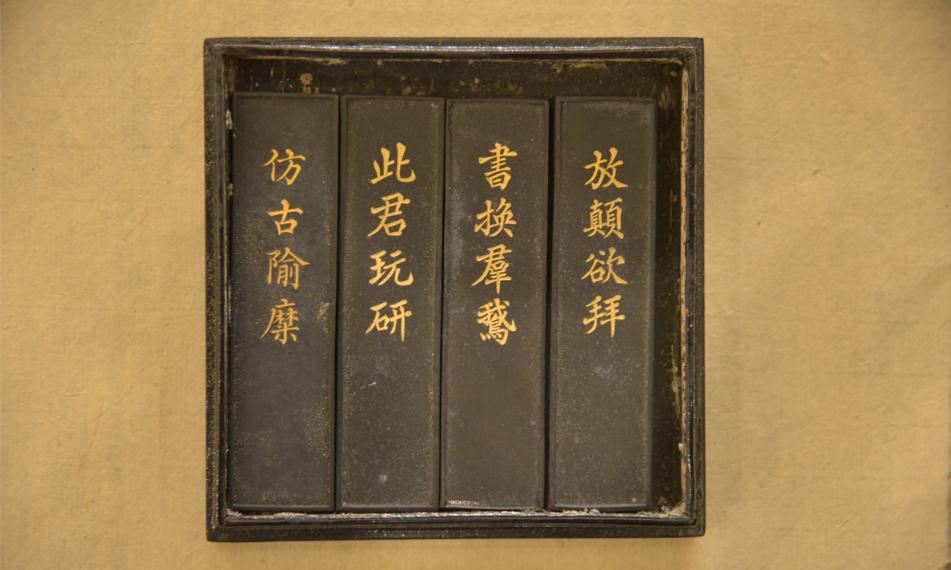 放顛欲拜
書換羣鵝
此君玩研
仿古隃糜